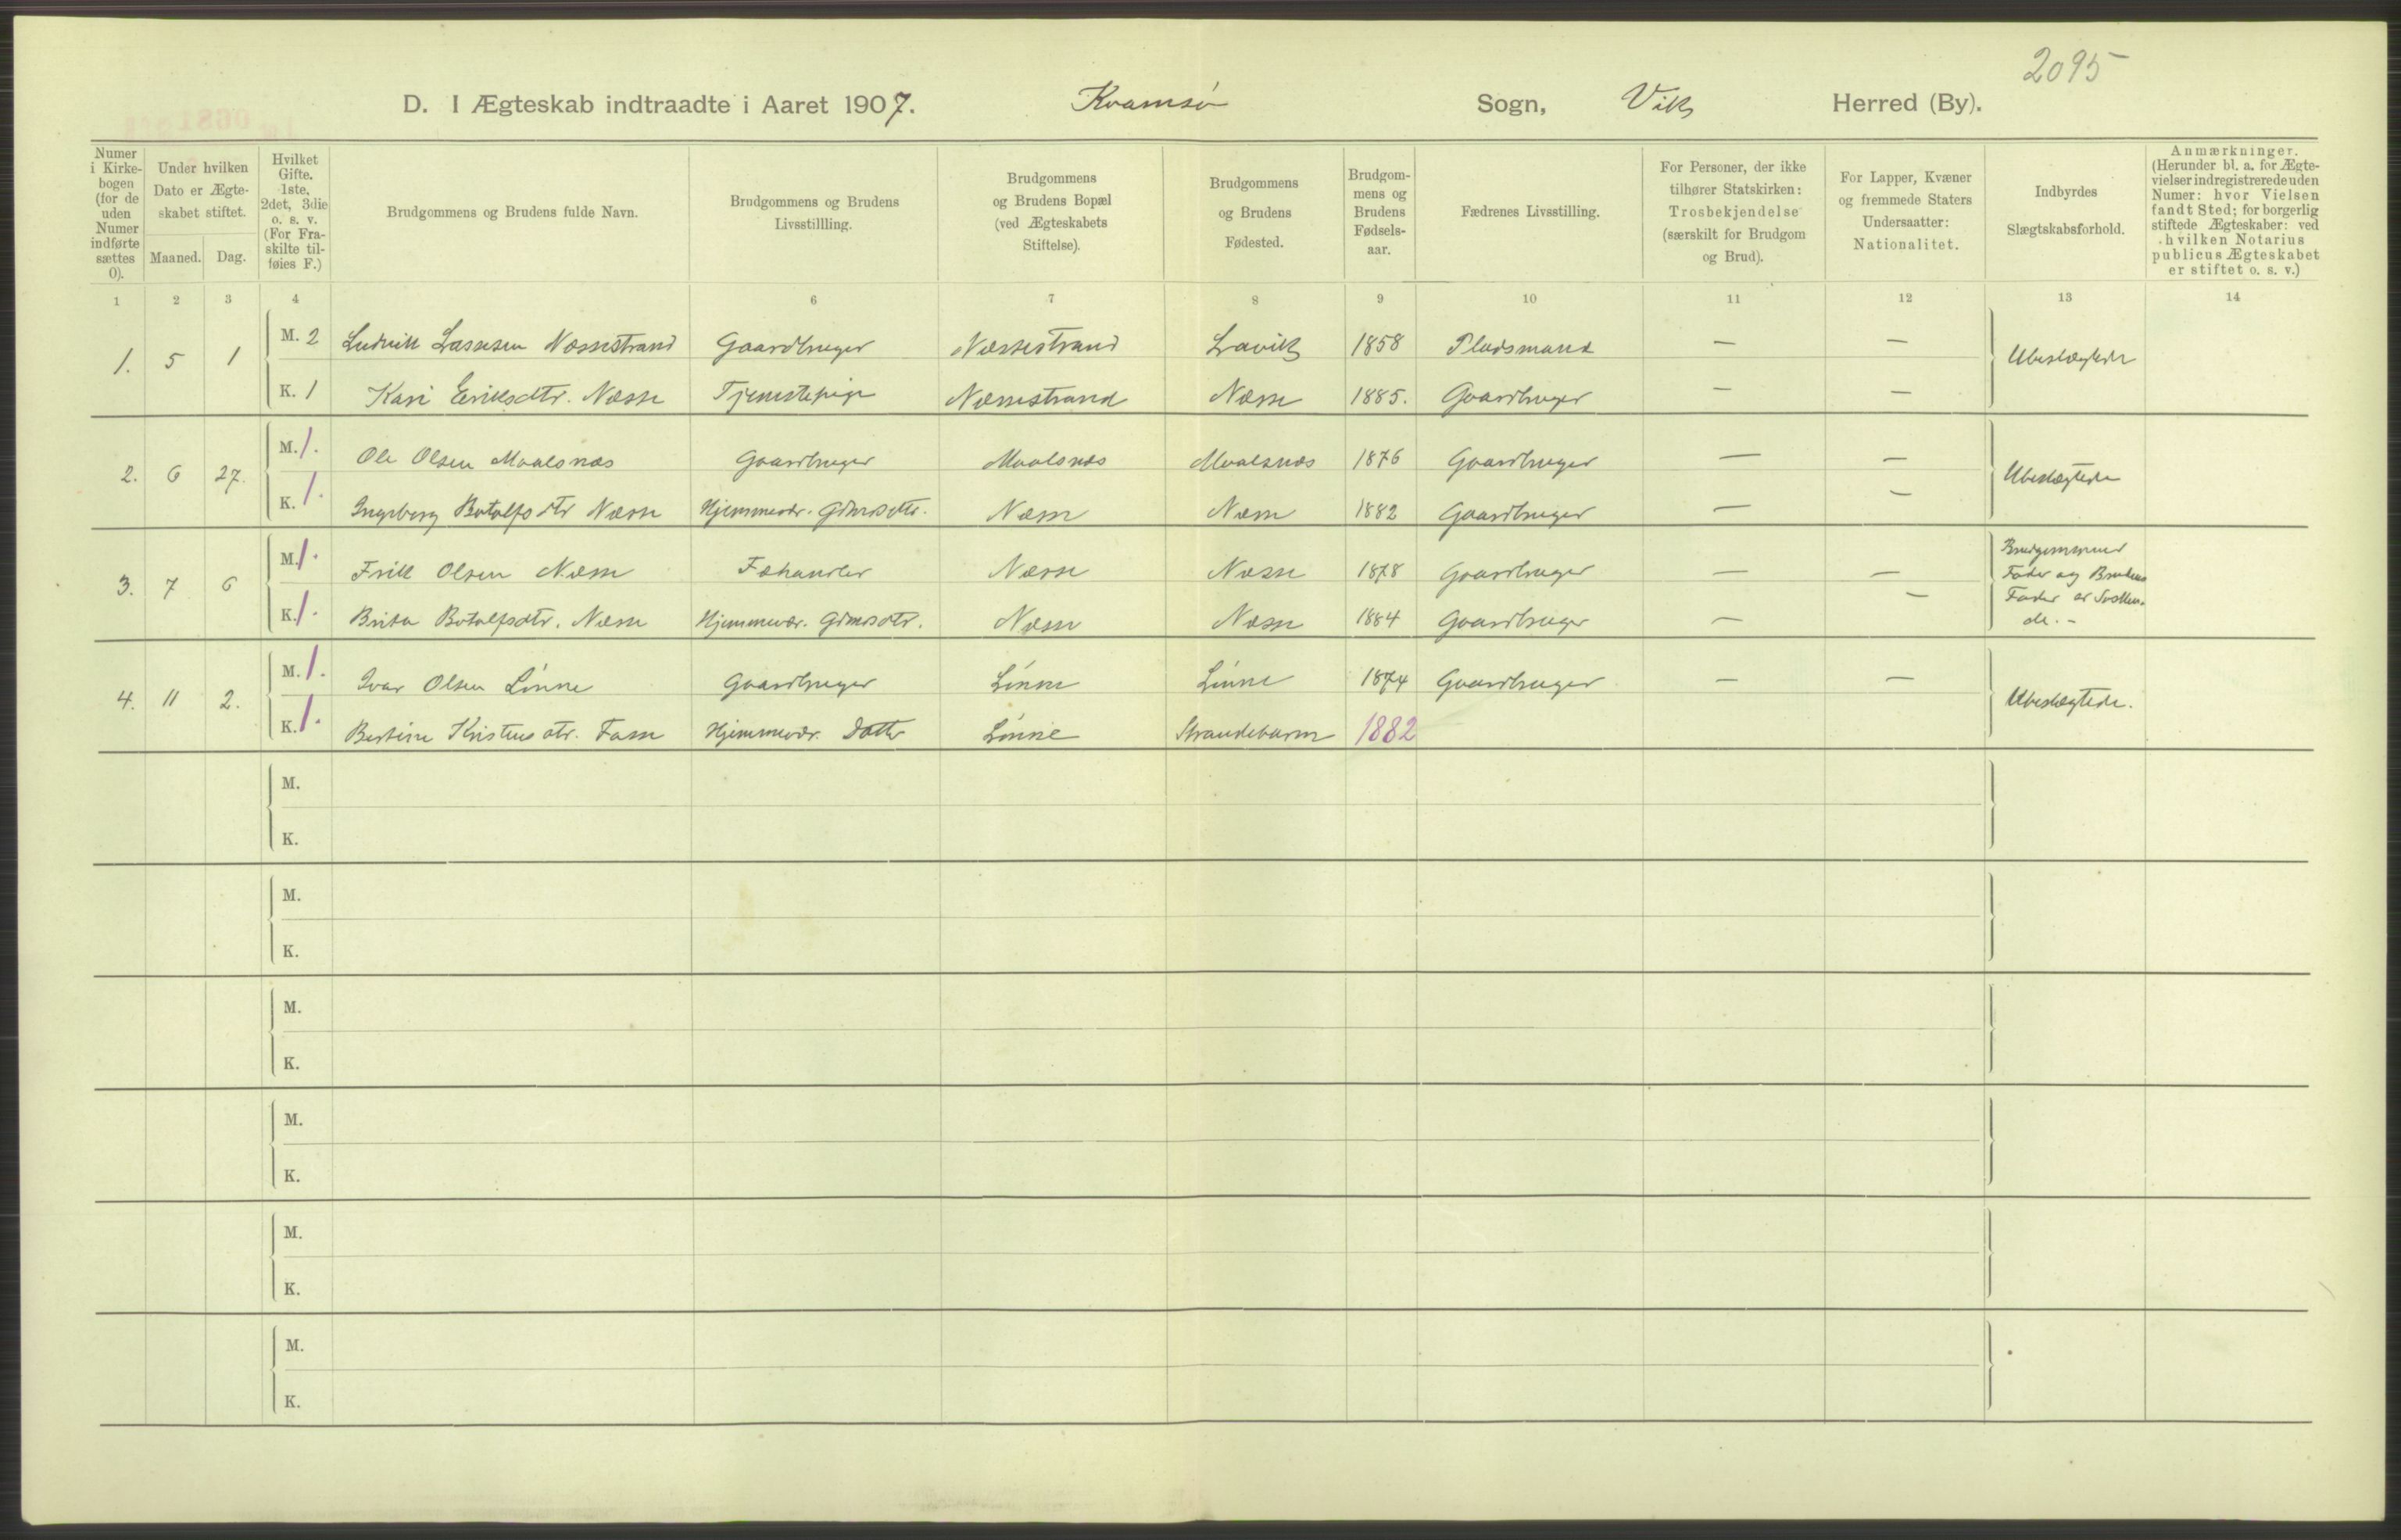 2095
D. I Ægteskab indtraadte i Aaret 1907. Kvamsø Sogn, Vik Herred (By).
Numer i Kirkebogen (for de uden Numer indførte sættes 0).
Under hvilken Dato er Ægteskabet stiftet.
Maaned. Dag.
Hvilket Gifte. 1ste, 2det, 3die o. s. v. (For Fraskilte tilføies F.)
Brudgommens og Brudens fulde Navn.
Brudgommens og Brudens Livsstillling.
Brudgommens og Brudens Bopæl (ved Ægteskabets Stiftelse).
Brudgommens og Brudens Fødested.
Brudgommens og Brudens Fødselsaar.
Fædrenes Livsstilling.
For Personer, der ikke tilhører Statskirken: Trosbekjendelse (særskilt for Brudgom og Brud).
For Lapper, Kvæner og fremmede Staters Undersaatter: Nationalitet.
Indbyrdes Slægtskabsforhold.
Anmærkninger. (Herunder bl. a. for Ægtevielser indregistrerede uden Numer: hvor Vielsen fandt Sted; for borgerlig stiftede Ægteskaber: ved hvilken Notarius publicus Ægteskabet er stiftet o. s. v.)
1 2 3 4 6 7 8 9 10 11 12 13 14
1. 5 1 M. 2 Ludvik Lassesen Næssestrand Gaardbruger Næssestrand Lavik 1858 Pladsmand — — Ubeslægtede
K. 1 Kari Eriksdtr. Næsse Tjenestepige Næssestrand Næsse 1885. Gaardbruger — —
2. 6 27. M. 1. Ole Olsen Maalsnæs Gaardbruger Maalsnæs Maalsnæs 1876 Gaardbruger — — Ubeslægtede
K. 1. Ingeborg Botolfsdtr Næsse Hjemmevær. Gdmdsdtr. Næsse Næsse 1882 Gaardbruger — —
3. 7 6 M. 1. Frik Olsen Næsse Fæhandler Næsse Næsse 1878 Gaardbruger — — Brudgommens
Fader og Brudens
Fader er Sødsken-
de. -
K. 1. Brita Botolfsdtr. Næsse Hjemmevær. Gdmdsdtr. Næsse Næsse 1884 Gaardbruger — —
4. 11 2. M. 1. Ivar Olsen Linne Gaardbruger Linne Linne 1874 Gaardbruger — — Ubeslægtede.
K. 1. Bertine Kristensdtr. Hjemmevær. Datter Linne Strandebarm 1882
M.
K.
M.
K.
M.
K.
M.
K.
M.
K.
M.
K.